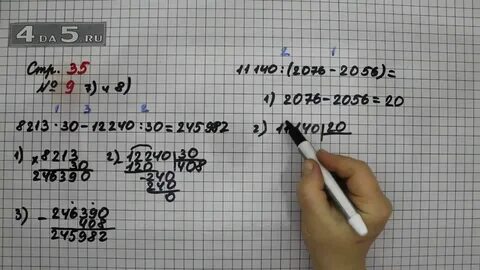 4 да 5.ru
Стр. 35
№ 9 7) и 8)
1 3 2
8213 · 30 − 12240 : 30 = 245982
1) × 8213
30
246390
2) − 12240 | 30
120 | 408
− 240
240
0
3) − 246390
408
245982
2 1
11140 : (2076 − 2056) =
1) 2076 − 2056 = 20
2) 11140 | 20